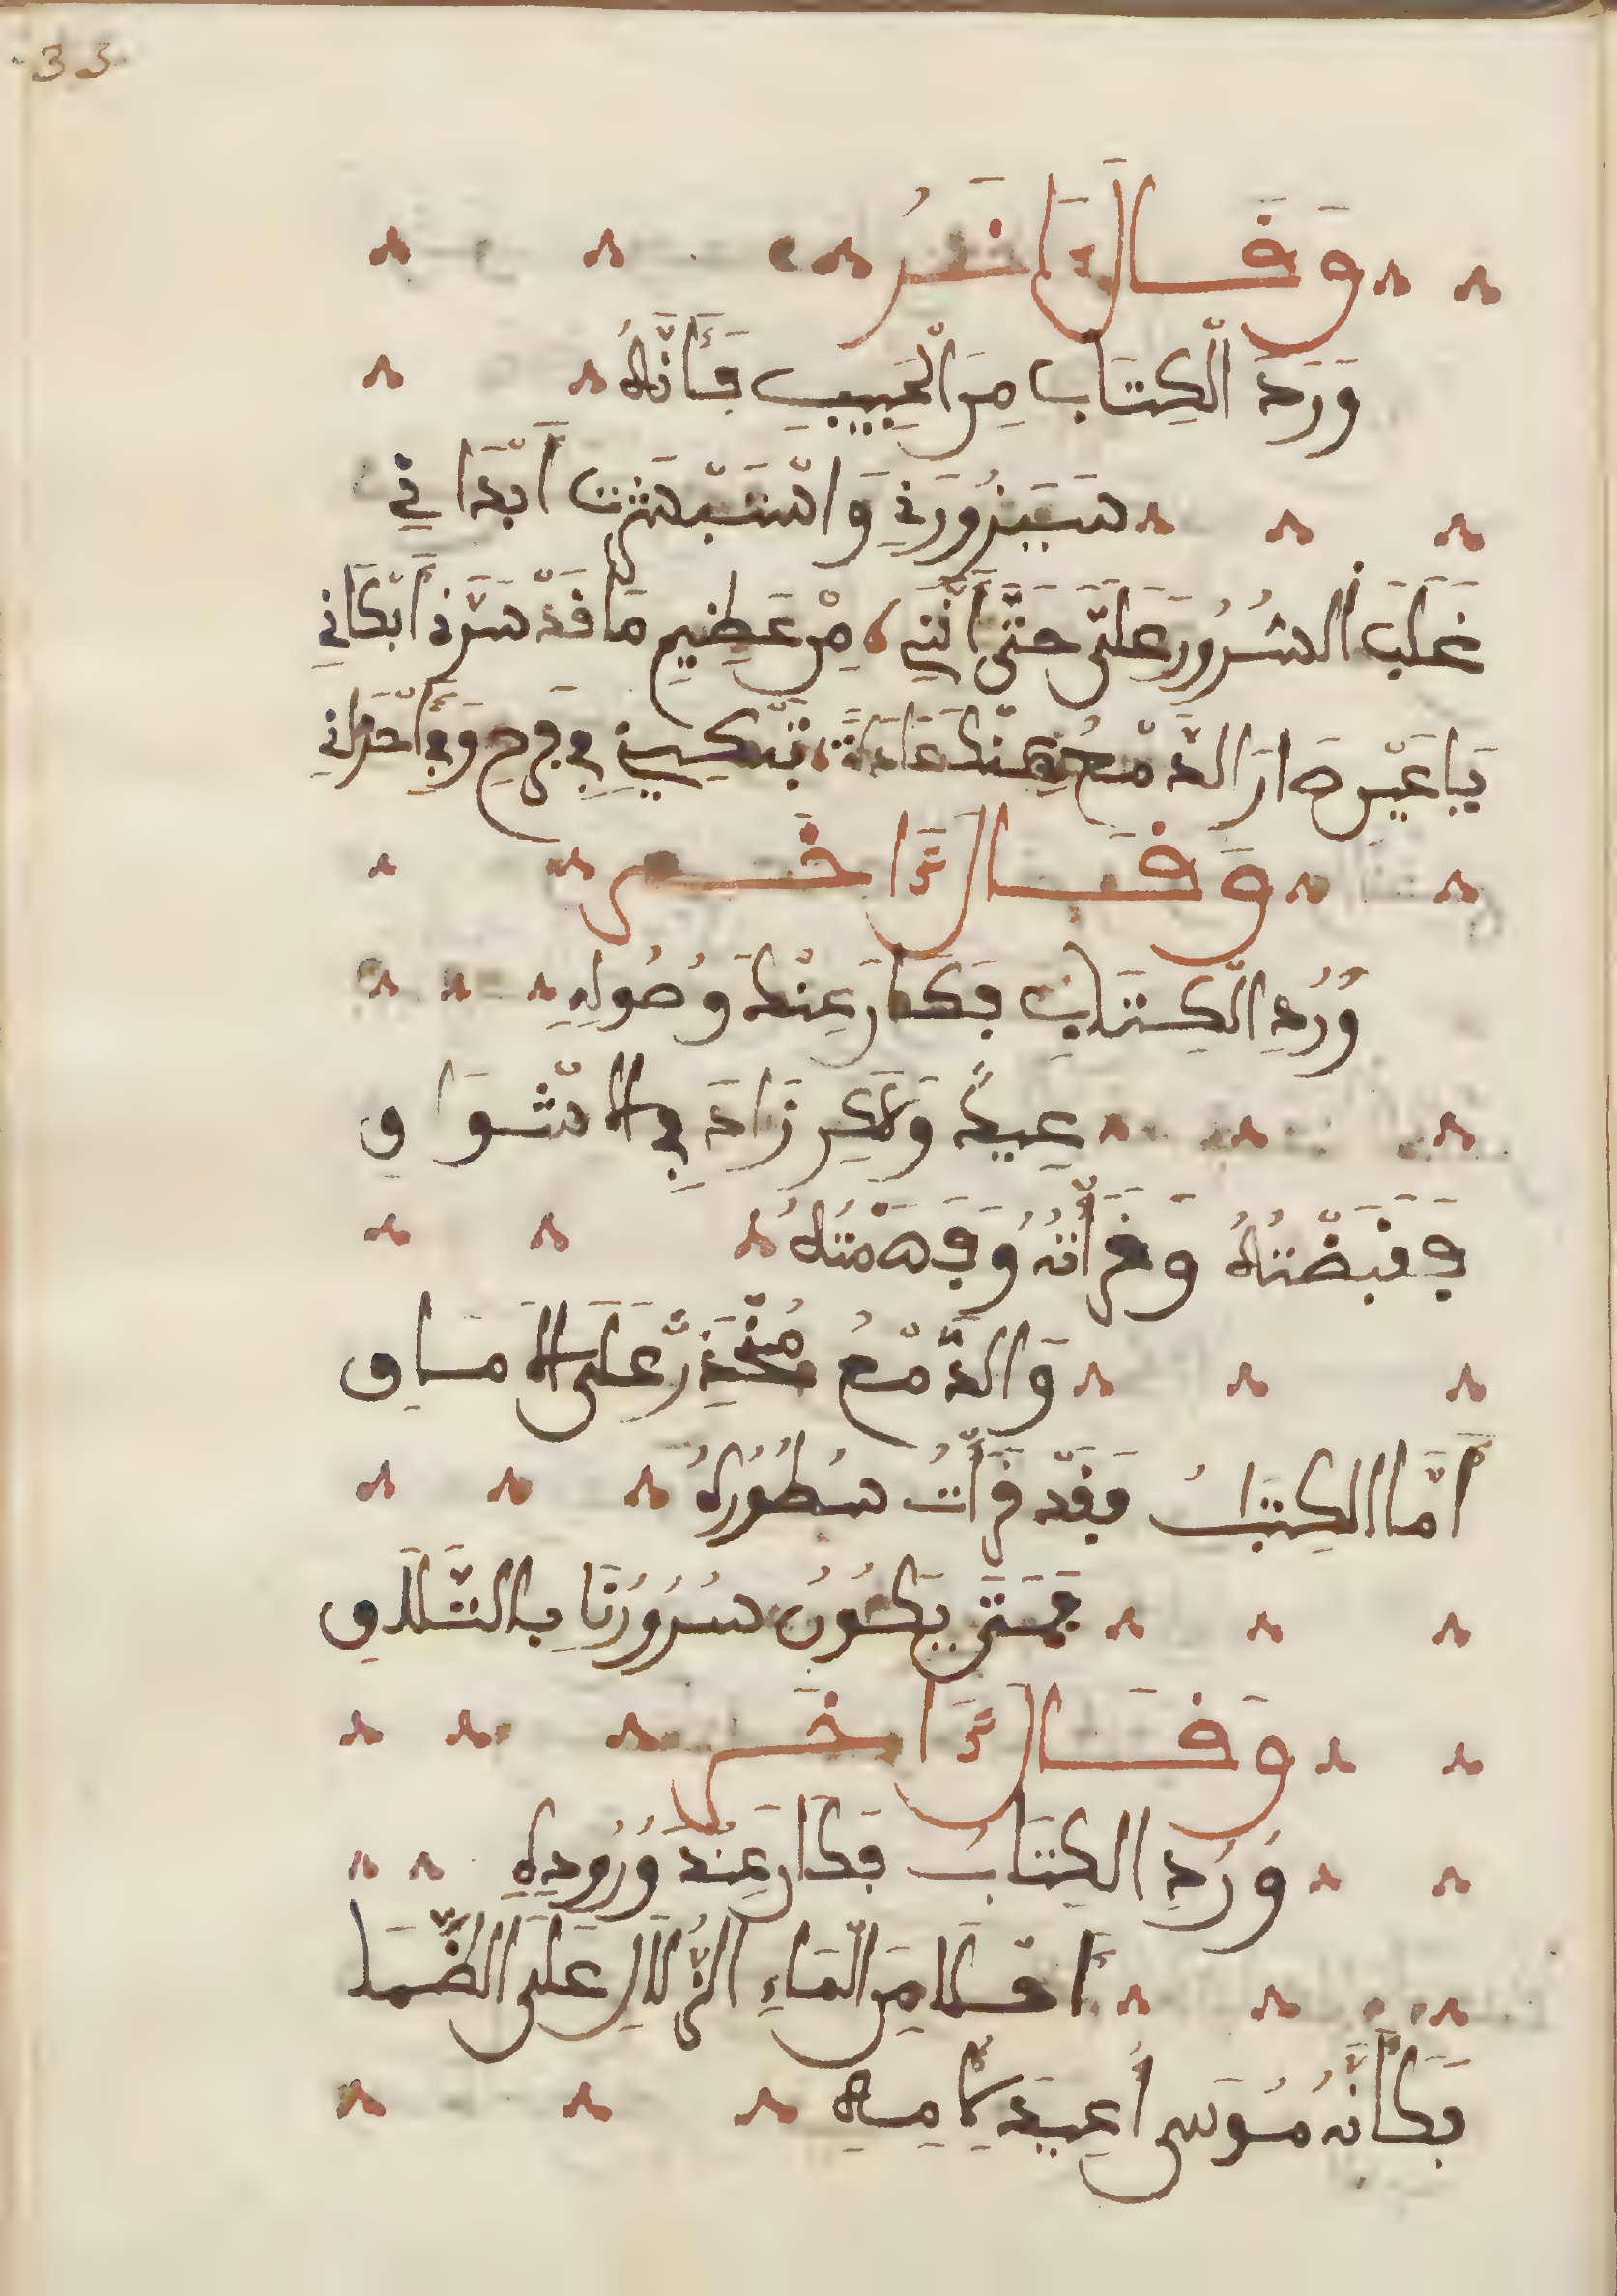 33
وَقَالَ ءَاخَرُ
وَرَدَ الْكِتَابُ مِنَ الْحَبِيبِ فَأَنَّهُ
سَيَزُورُنِي وَاسْتَبْشَرَتْ أَبْدَانِي
غَلَبَ السُّرُورُ عَلَيَّ حَتَّى أَنَّنِي مِنْ عَظِيمِ مَا قَدْ سَرَّنِي أَبْكَانِي
يَا عَيْنُ صَارَ الدَّمْعُ عِنْدَكِ عَادَةً تَبْكِينَ فِي فَرَحٍ وَفِي أَحْزَانِي
وَقَالَ ءَاخَر
وَرَدَ الْكِتَابُ فَكَانَ عِنْدَ وُصُولِهِ
عِيدٌ وَلَكِنْ زَادَ فِي الاشْوَاقِ
فَقَبَضْتُهُ وَقَرَأْتُهُ وَفَهِمْتُهُ
وَالدَّمْعُ مُنْحَدِرٌ عَلَى الامَاقِ
أَمَّا الْكِتَابُ فَقَدْ قَرَأْتُ سُطُورَهُ
فَمَتَى يَكُونُ سُرُورُنَا بِالتَّلَاقِ
وَقَالَ ءَاخَر
وَرَدَ الْكِتَابُ فَكَانَ عِنْدَ وُرُودِهِ
أَحْلَا مِنَ الْمَاءِ الزُّلَالِ عَلَى الظَّمَا
فَكَأَنَّهُ مُوسَى أُعِيدَ لِأُمِّهِ